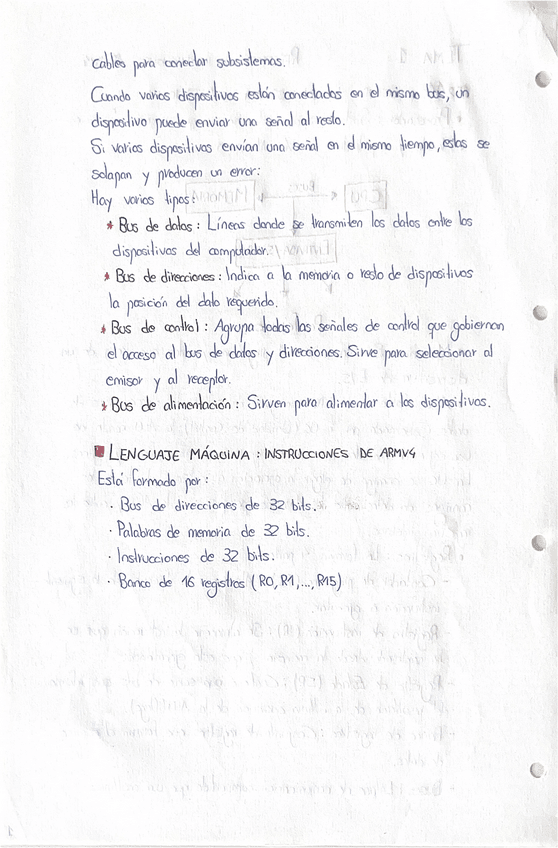 Cables para conectar subsistemas.
Cuando varios dispositivos están conectados en el mismo bus, un
dispositivo puede enviar una señal al resto.
Si varios dispositivos envían una señal en el mismo tiempo, estas se
solapan y producen un error:
Hay varios tipos:
* Bus de datos: Líneas donde se transmiten los datos entre los
dispositivos del computador.
* Bus de direcciones: Indica a la memoria o resto de dispositivos
la posición del dato requerido.
* Bus de control: Agrupa todas las señales de control que gobiernan
el acceso al bus de datos y direcciones. Sirve para seleccionar al
emisor y al receptor.
* Bus de alimentación: Sirven para alimentar a los dispositivos.
LENGUAJE MÁQUINA: INSTRUCCIONES DE ARMV4
Está formado por:
· Bus de direcciones de 32 bits.
· Palabras de memoria de 32 bits.
· Instrucciones de 32 bits.
· Banco de 16 registros (R0, R1,..., R15)